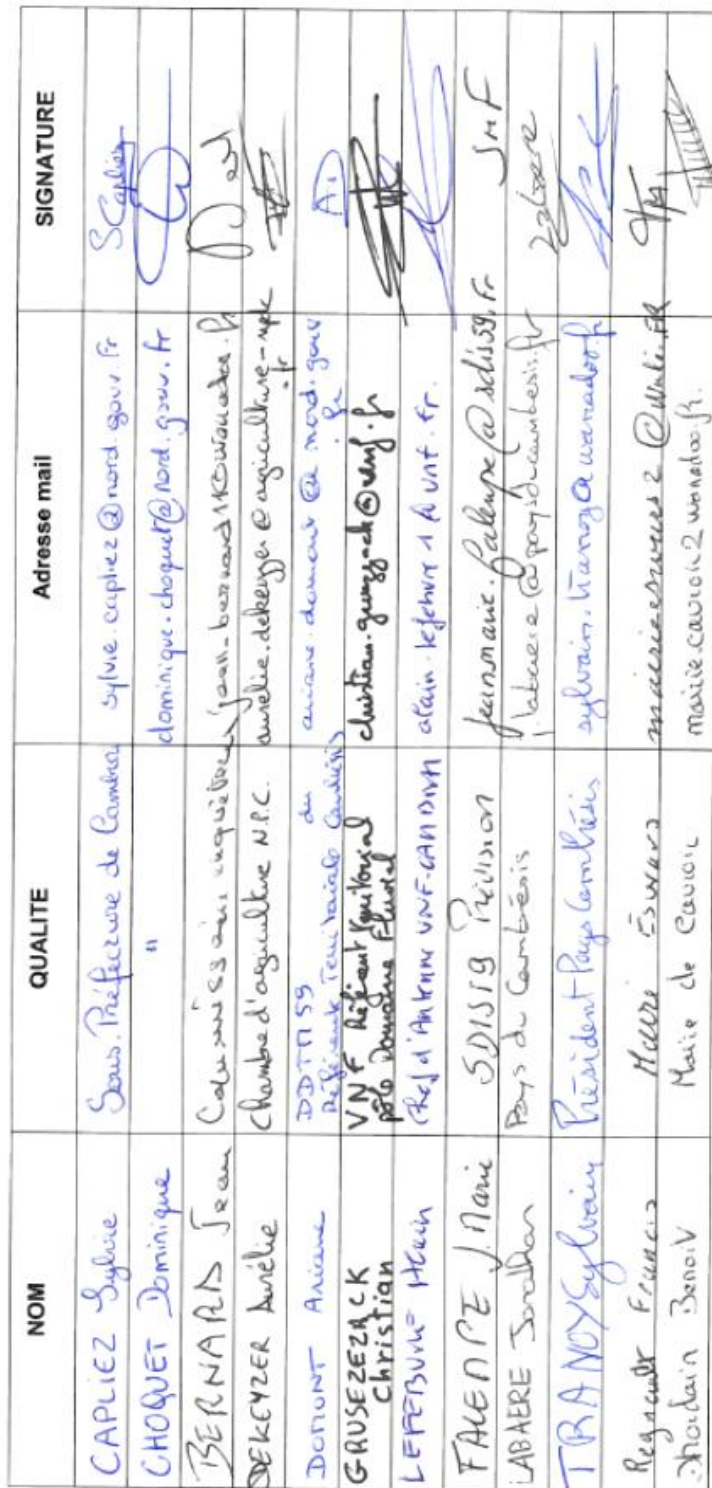 NOM QUALITE Adresse mail SIGNATURE
CAPLIEZ Sylvie Sous-Préfecture de Cambrai sylvie.capliez@nord.gouv.fr SCapliez
CHOQUET Dominique " dominique.choquet@nord.gouv.fr
BERNARD Jean Commissaire enquêteur
DEKEYZER Aurélie Chambre d'agriculture N.P.C. aurelie.dekeyzer@agriculture-npdc
.fr
DOMONT Ariane DDTM 59 ariane.domont@nord.gouv AD
Référente Territoriale du Cambrésis fr
GRUSEZEZACK VNF Référent territorial
Christian pôle Domaine Fluvial
LEFEBVRE Alain Chef d'Antenne VNF CAMBRAI alain.lefebvre1@vnf.fr.
FALEMPE J. Marie SDIS 59 Prévision jeanmarie.falempe@sdis59.fr JMF
LABAERE Jonathan Pays du Cambrésis j.labaere@paysducambresis.fr
TRANOY Sylvain Président Pays Cambrésis sylvain.tranoy@wanadoo.fr
Regnault Francis Maire Eswars
Dhordain Benoit Maire de Cauroir mairie.cauroir2wanadoo.fr.